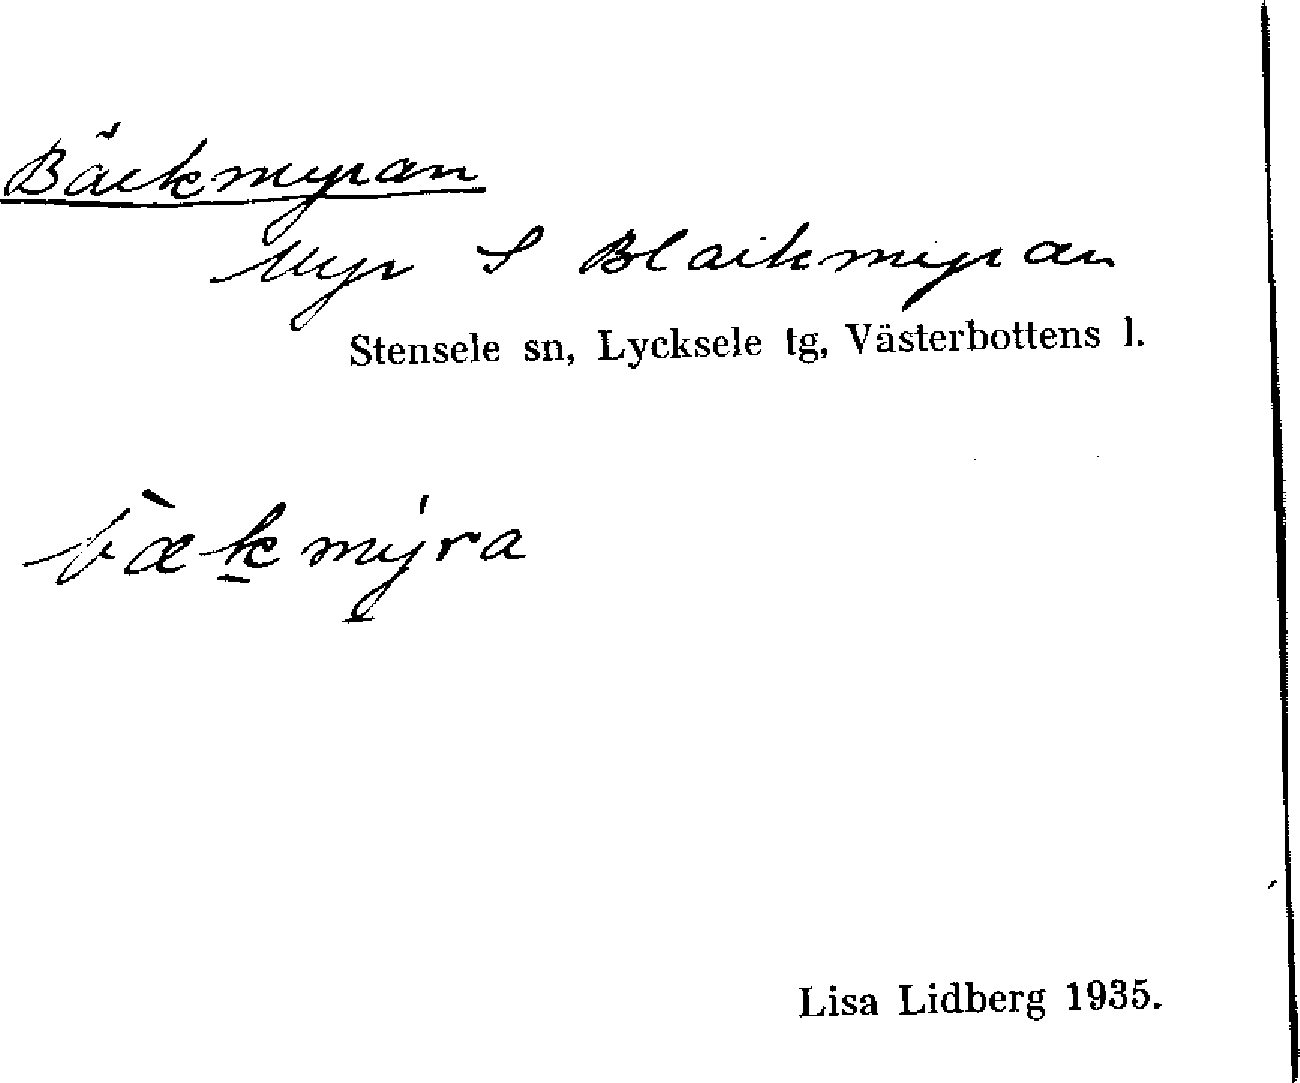 Bäckmyran
Myr S Blaikmyran
Stensele sn, Lycksele tg, Västerbottens l.
bæ̀k̲mýra
Lisa Lidberg 1935.